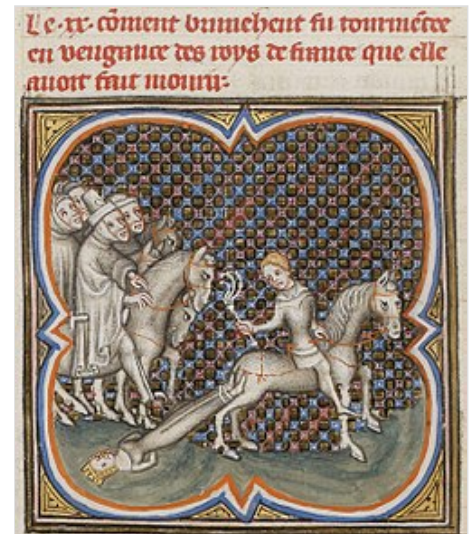 Le .xx. cōment brunehent fu tourmētee
en vengance des roys de france que elle
auoit fait mourir.